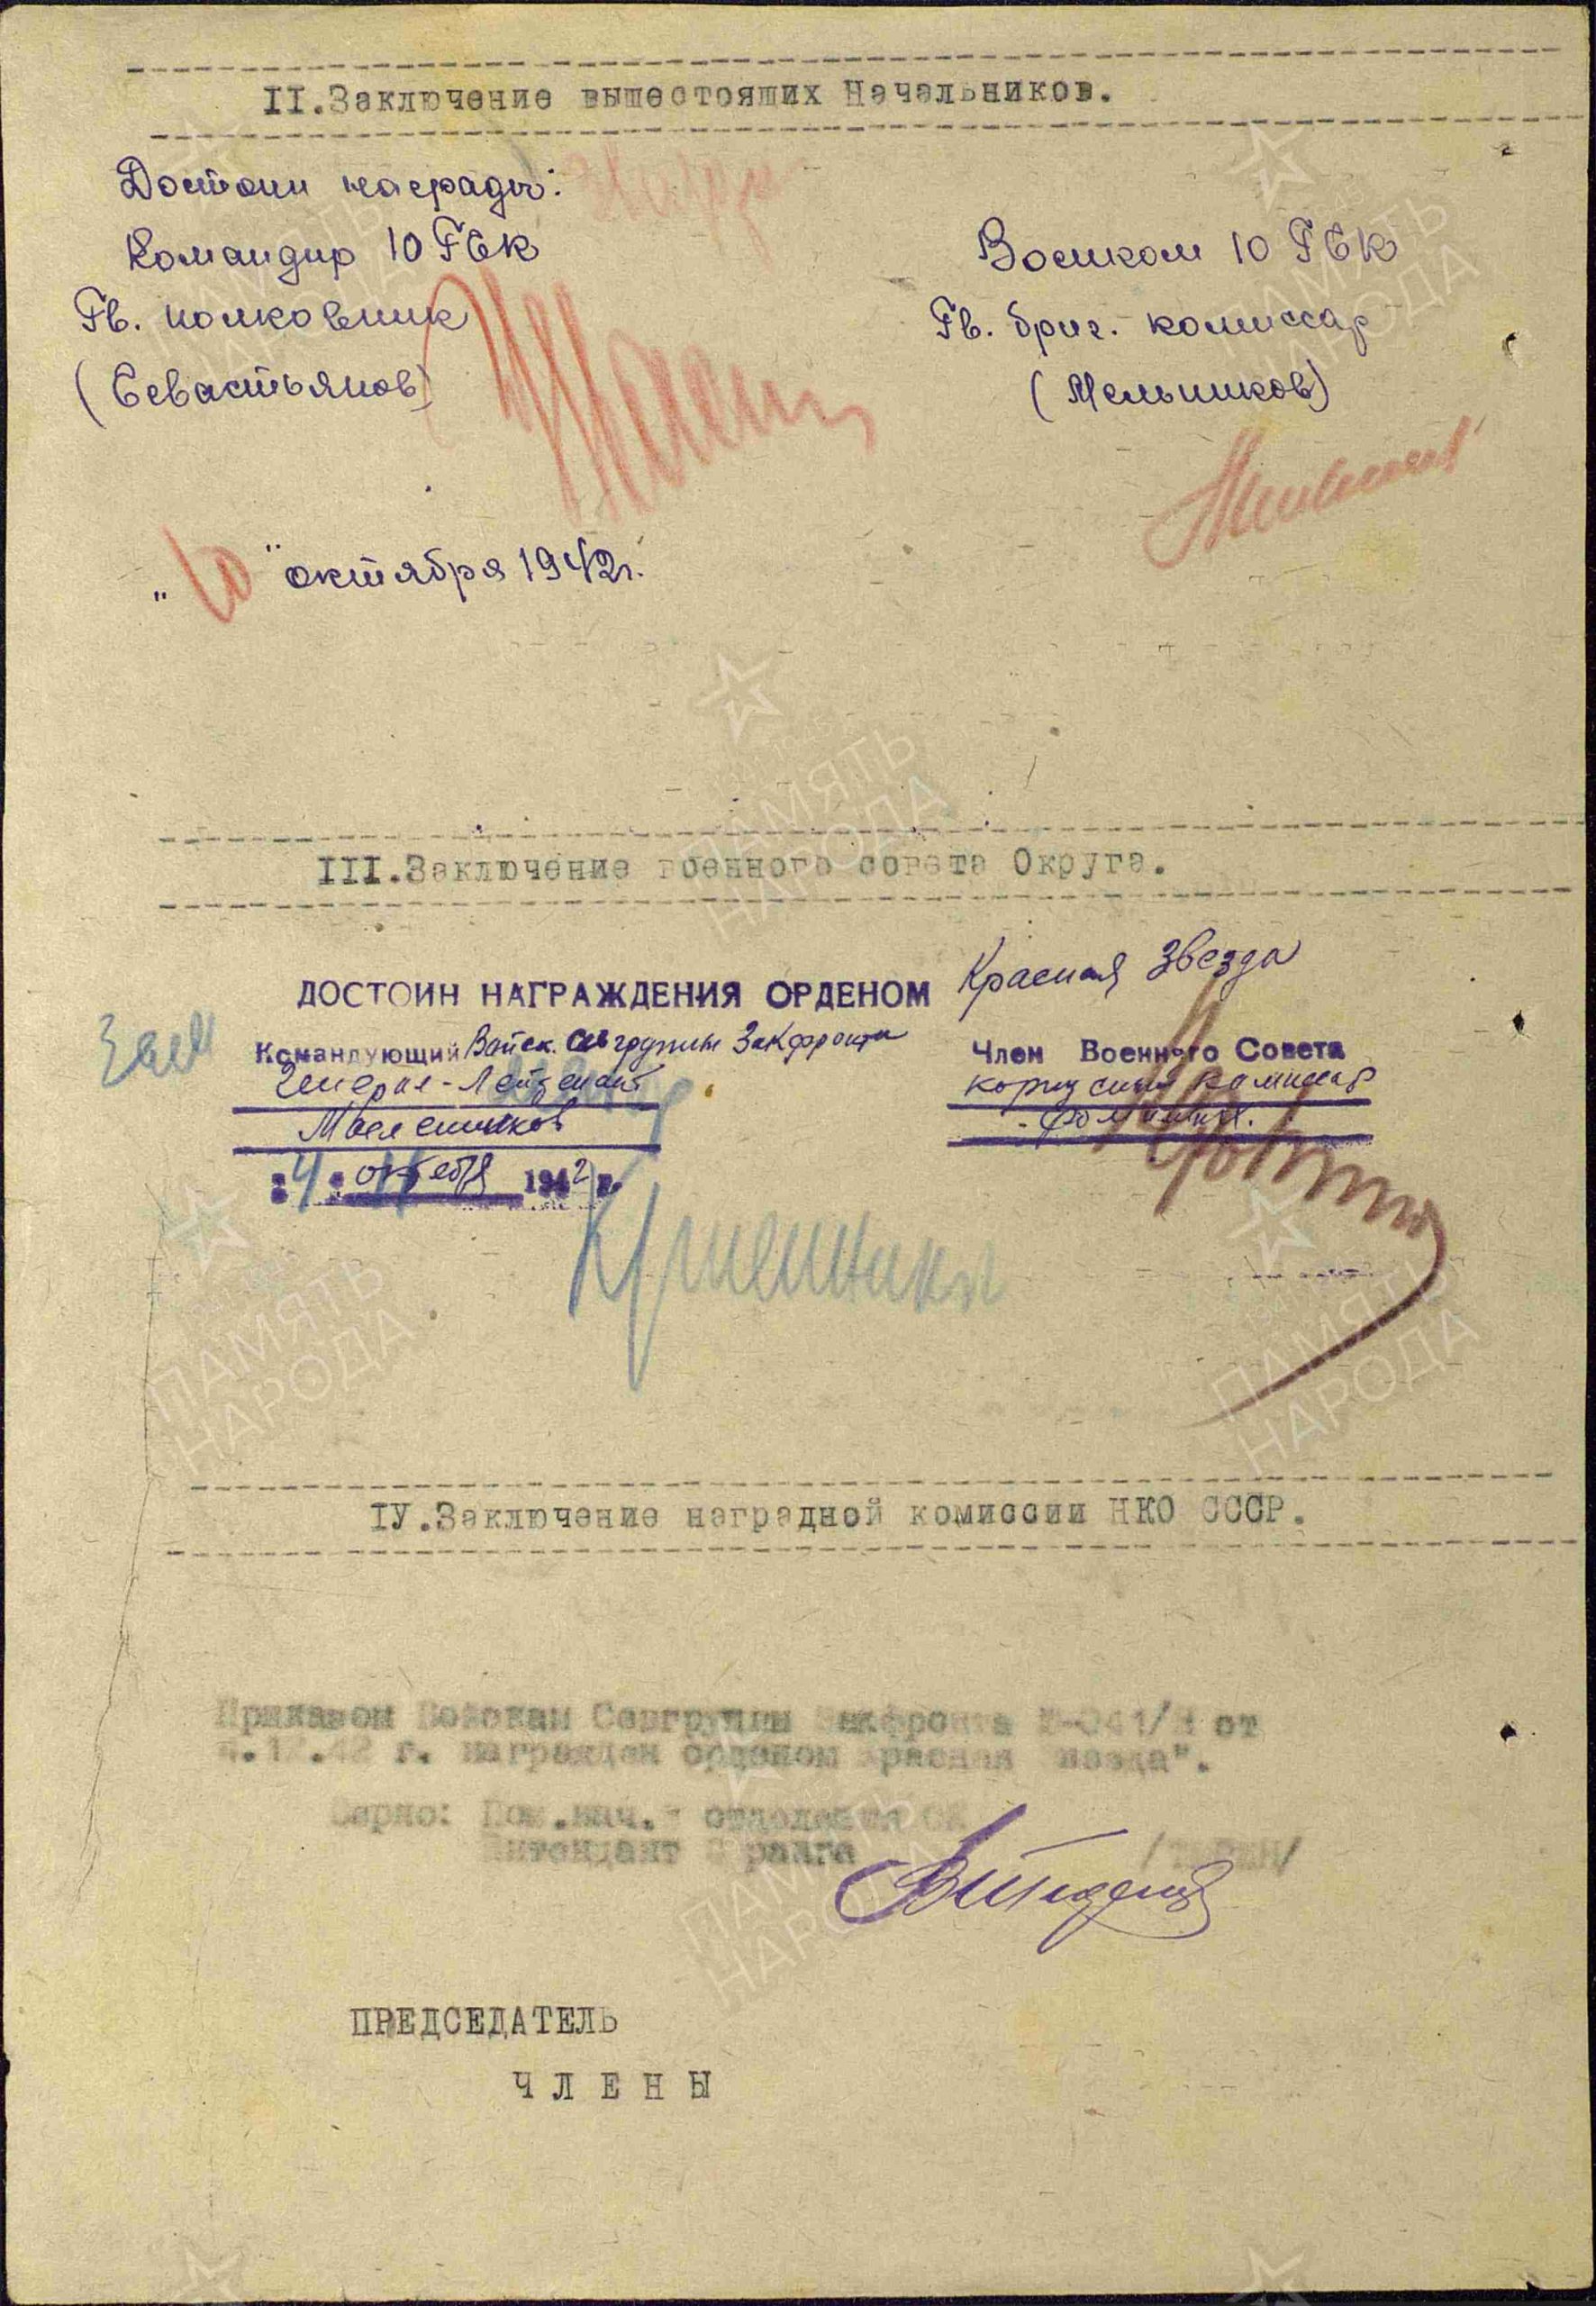 II.Заключение вышестоящих Начальников.
Достоин награды:
Командир 10 ГСК
Гв. полковник
(Севастьянов)
Военком 10 ГСК
Гв. бриг. комиссар
(Мельников)
"10" октября 1942г.
III.Заключение военного совета Округа.
ДОСТОИН НАГРАЖДЕНИЯ ОРДЕНОМ Красная Звезда
Зам
Командующий Войск. Сев группы Закфронта
Генерал-Лейтенант
Масленников
"4" 1942 г.
Член Военного Совета
корпусной комиссар
Фоминых.
IУ.Заключение наградной комиссии НКО СССР.
Приказом Войскам Севгруппы Закфронта от
4.12.42 г. награжден орденом Красная Звезда".
Верно: Пом.нач. отделения ОК
Интендант ранга
ПРЕДСЕДАТЕЛЬ
ЧЛЕНЫ
ПАМЯТЬ
НАРОДА